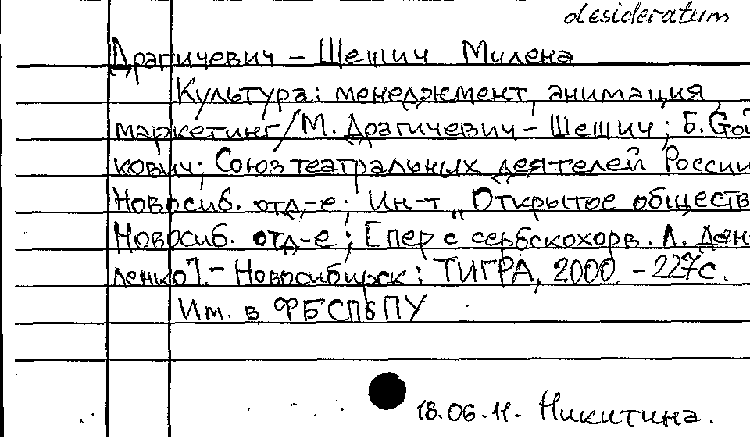 desideratum
Драгичевич - Шешич Милена
Культура: менеджмент, анимация,
маркетинг / М. Драгичевич - Шешич; Б. Стой
кович; Союз театральных деятелей России
Новосиб. отд-е; Ин-т „Открытое обществ
Новосиб. отд-е; [пер с сербскохорв. Л. Дан
ленко]. - Новосибирск: ТИГРА, 2000. - 227с.
Им. в ФБСПбПУ
18.06.11. Никитина.